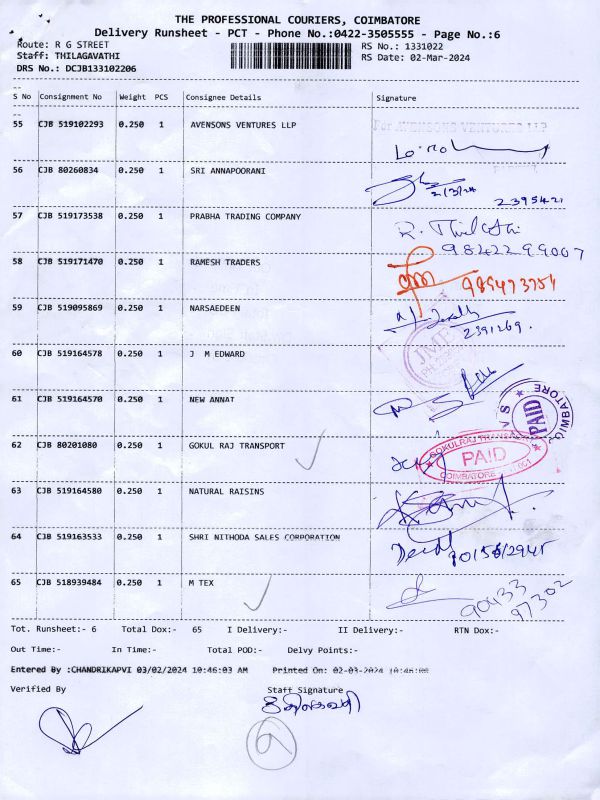 THE PROFESSIONAL COURIERS, COIMBATORE
Delivery Runsheet - PCT - Phone No.:0422-3505555 - Page No.:6
Route: R G STREET RS No.: 1331022
Staff: THILAGAVATHI RS Date: 02-Mar-2024
DRS No.: DCJB133102206
S No Consignment No Weight PCS Consignee Details Signature
55 CJB 519102293 0.250 1 AVENSONS VENTURES LLP
For AVENSONS VENTURES LLP
56 CJB 80260834 0.250 1 SRI ANNAPOORANI
2/3/24 2395421
57 CJB 519173538 0.250 1 PRABHA TRADING COMPANY
9842299007
58 CJB 519171470 0.250 1 RAMESH TRADERS
59 CJB 519095869 0.250 1 NARSAEDEEN
2391269
60 CJB 519164578 0.250 1 J M EDWARD
61 CJB 519164570 0.250 1 NEW ANNAT
PAID
COIMBATORE
62 CJB 80201080 0.250 1 GOKUL RAJ TRANSPORT
PAID
COIMBATORE
63 CJB 519164580 0.250 1 NATURAL RAISINS
64 CJB 519163533 0.250 1 SHRI NITHODA SALES CORPORATION
65 CJB 518939484 0.250 1 M TEX
90433
97302
Tot. Runsheet:- 6 Total Dox:- 65 I Delivery:- II Delivery:- RTN Dox:-
Out Time:- In Time:- Total POD:- Delvy Points:-
Entered By :CHANDRIKAPVI 03/02/2024 10:46:03 AM Printed On: 02-03-2024
Verified By Staff Signature